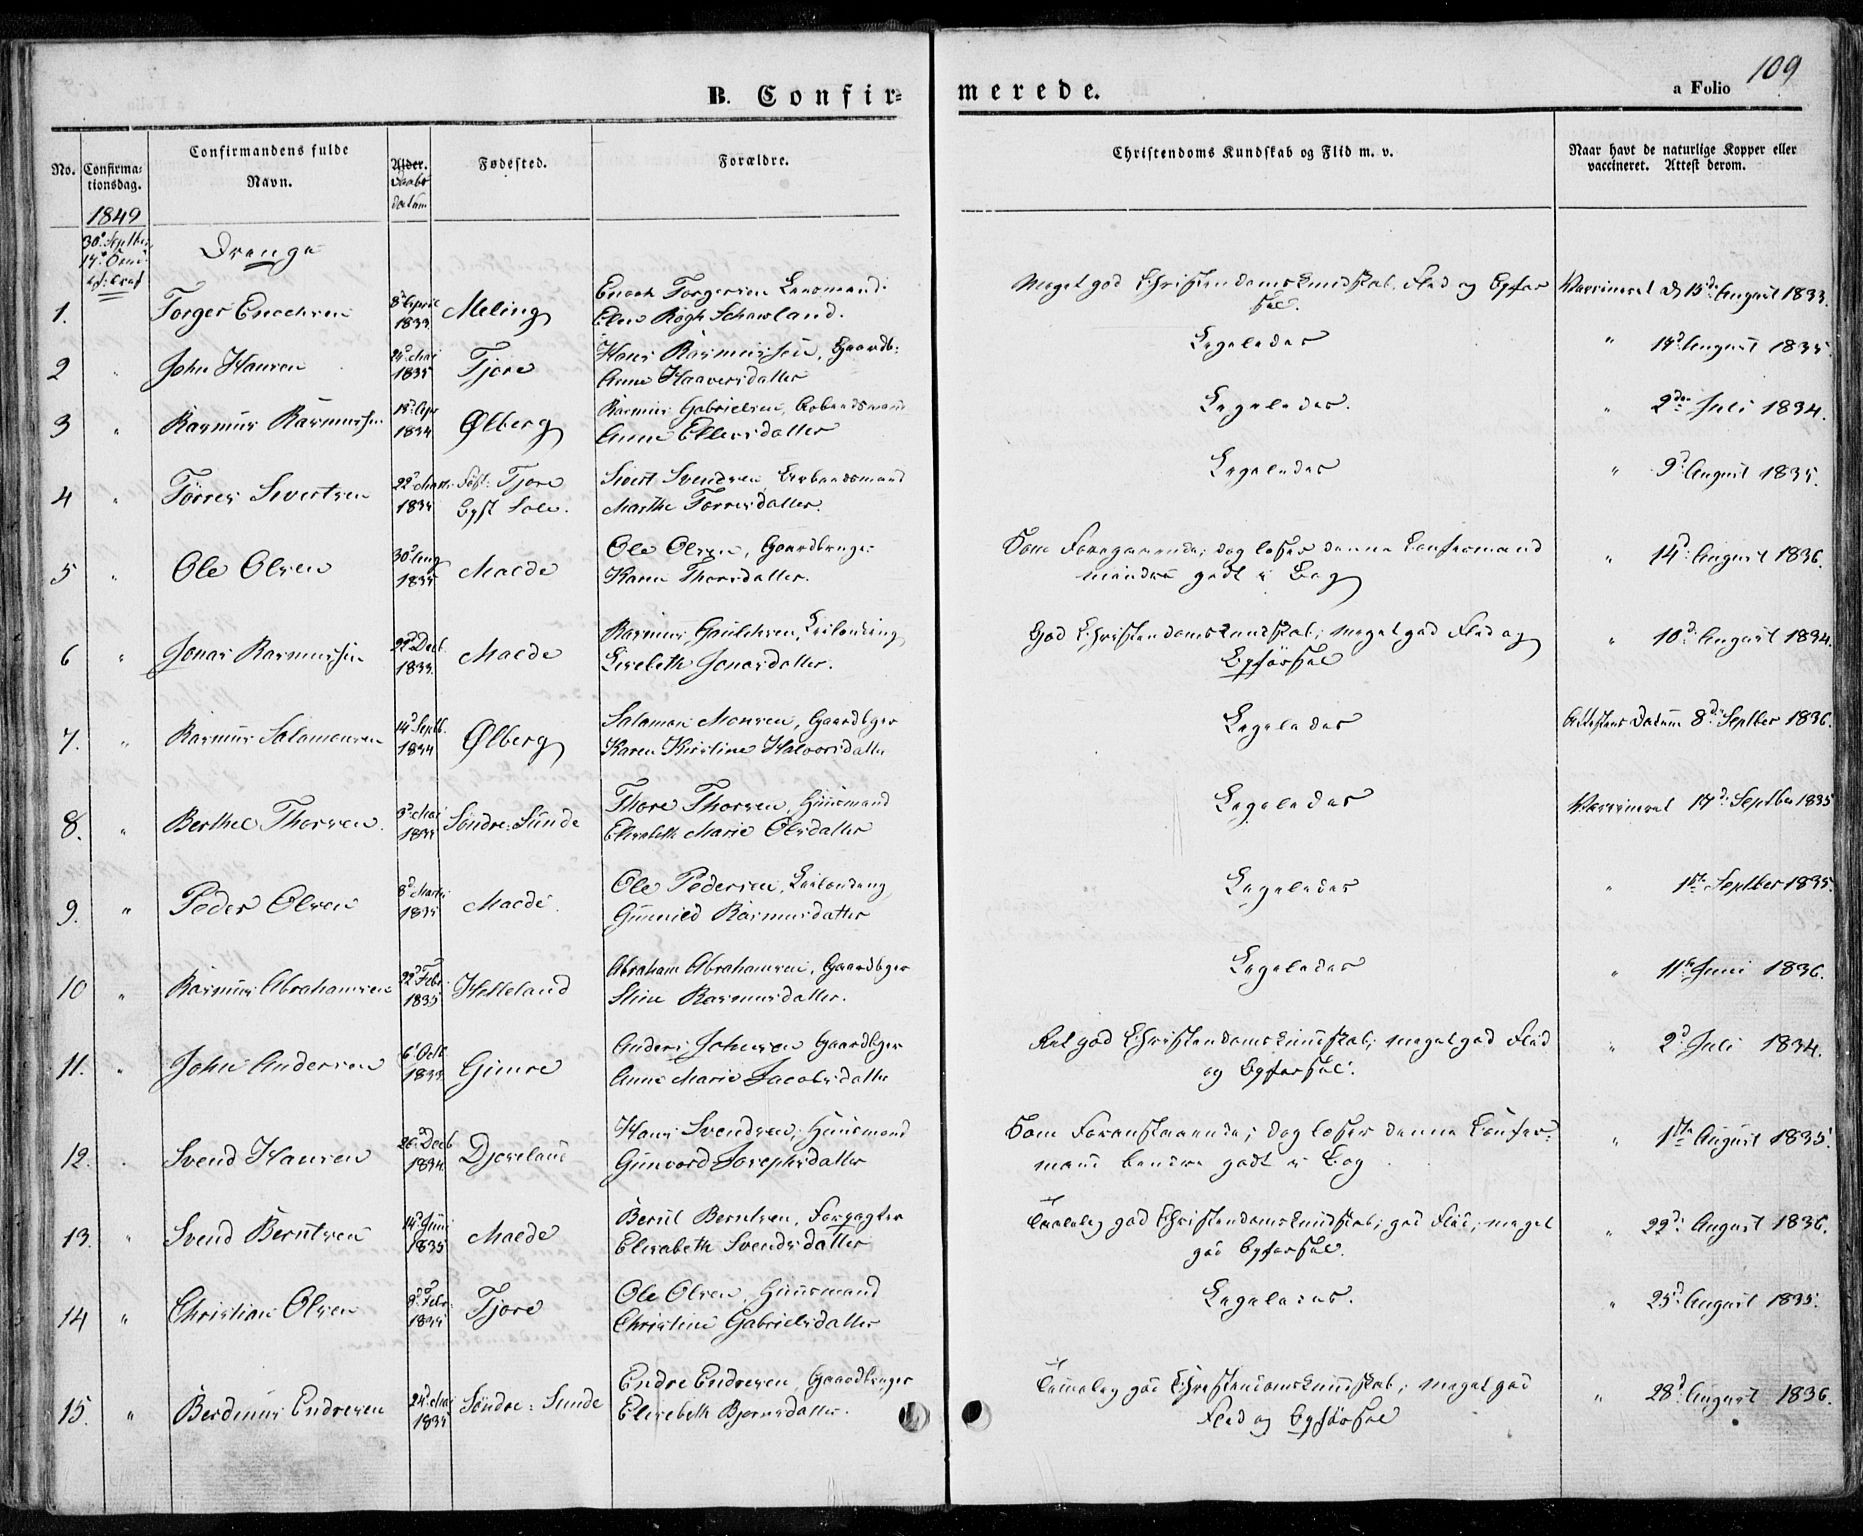 109
B. Confirmerede.
a Folio
No. Confirmationsdag. Confirmandens fulde Navn. Alder. Daabsdatum Fødested. Forældre. Christendoms Kundskab og Flid m. v. Naar havt de naturlige Kopper eller vaccineret. Attest derom.
1849
30 Septbr
17 s: Tref
Drenge
1. Torger Enochsen 8 April 1833 Meling Enoch Torgersen Lensmand: Elen Rogh Schawland. Meget god Christendomskundskab, Flid og Opførsel. Vaccineret d 15d: August 1833.
2 " John Hansen 24 Mai 1835 Tjore Hans Rasmussen, Gaardb: Anne Haaversdatter Ligeledes " 17d: August 1835
3 " Rasmus Rasmussen 18 Apr 1834 Ølberg Rasmus Gabrielsen, Arbeidsmand Anne Ellersdatter Ligeledes. " 2den Juli 1834.
4 " Törres Sivertsen 22 Marts 1835 Föst: Tjore Opst Sole. Sivert Svendsen, Arbeidsmand Marthe Torresdatter. Ligeledes " 9d August 1835.
5 " Ole Olsen 30 Aug 1835 Malde Ole Olsen, Gaardbruger Karen Thorsdatter. Som Foregaaende; dog læser denne Confirmand mindre godt i Bog " 14d: August 1836.
6 " Jonas Rasmussen 22 Decb 1833. Malde Rasmus Gauteksen, Leilending Liselbeth Jonasdatter. God Christendomskundskab; meget god Flid og Opførsel " 10d: August 1834.
7. " Rasmus Salamonsen 14 Septb. 1834 Ølberg Salamon Monsen, Gaardbger Karen Kirstine Halvorsdatter Ligeledes Attestens Datum 8d: Septber 1836.
8. " Berthel Thorsen. 3 Mai 1835 Söndre-Sunde Thore Thorsen, Huusmand Elisabeth Marie Olsdatter Ligeledes Vaccineret 17d: Septber 1835
9. " Peder Olsen 8 Marts 1835 Malde. Ole Pedersen, Leilending Gunnild Rasmusdatter Ligeledes " 1ste Septber 1835.
10 " Rasmus Abrahamsen 22 Febr 1835 Helleland Abraham Abrahamsen, Gaardbger Stine Rasmusdatter. Ligeledes " 11te Juni 1836.
11. " John Andersen 6 Octb 1833 Gimre Anders Johnsen Gaardbger Anne Marie Jacobsdatter Ret god Christendomskundskab; meget god Flid og Opførsel. " 2d Juli 1834.
12. " Svend Hansen 26 Decb 1834 Djoseland Hans Svendsen, Huusmand Gunvord Josephsdatter Som Foranstaaende; dog læser denne Confirmand bendre godt i Bog " 1ste August 1835.
13. " Svend Berntsen 14 Juni 1835 Malde Bernt Berntsen, Forpagter Elisabeth Svendsdatter Temmelig god Christendomskundskab; god Flid; meget god Opførsel. " 22d: August 1836.
14 " Christian Olsen 8 Febr. 1835 Tjore Ole Olsen, Huusmand Christine Gabrielsdatter Ligeledes. " 25d: August 1835.
15. " Berdinus Endresen 24 Mai 1835 Söndre-Sunde Endre Endresen, Gaardbruger Elisabeth Bjornsdatter. Temmelig god Christendomskundskab; meget god Flid og Opførsel " 28d: August 1836.